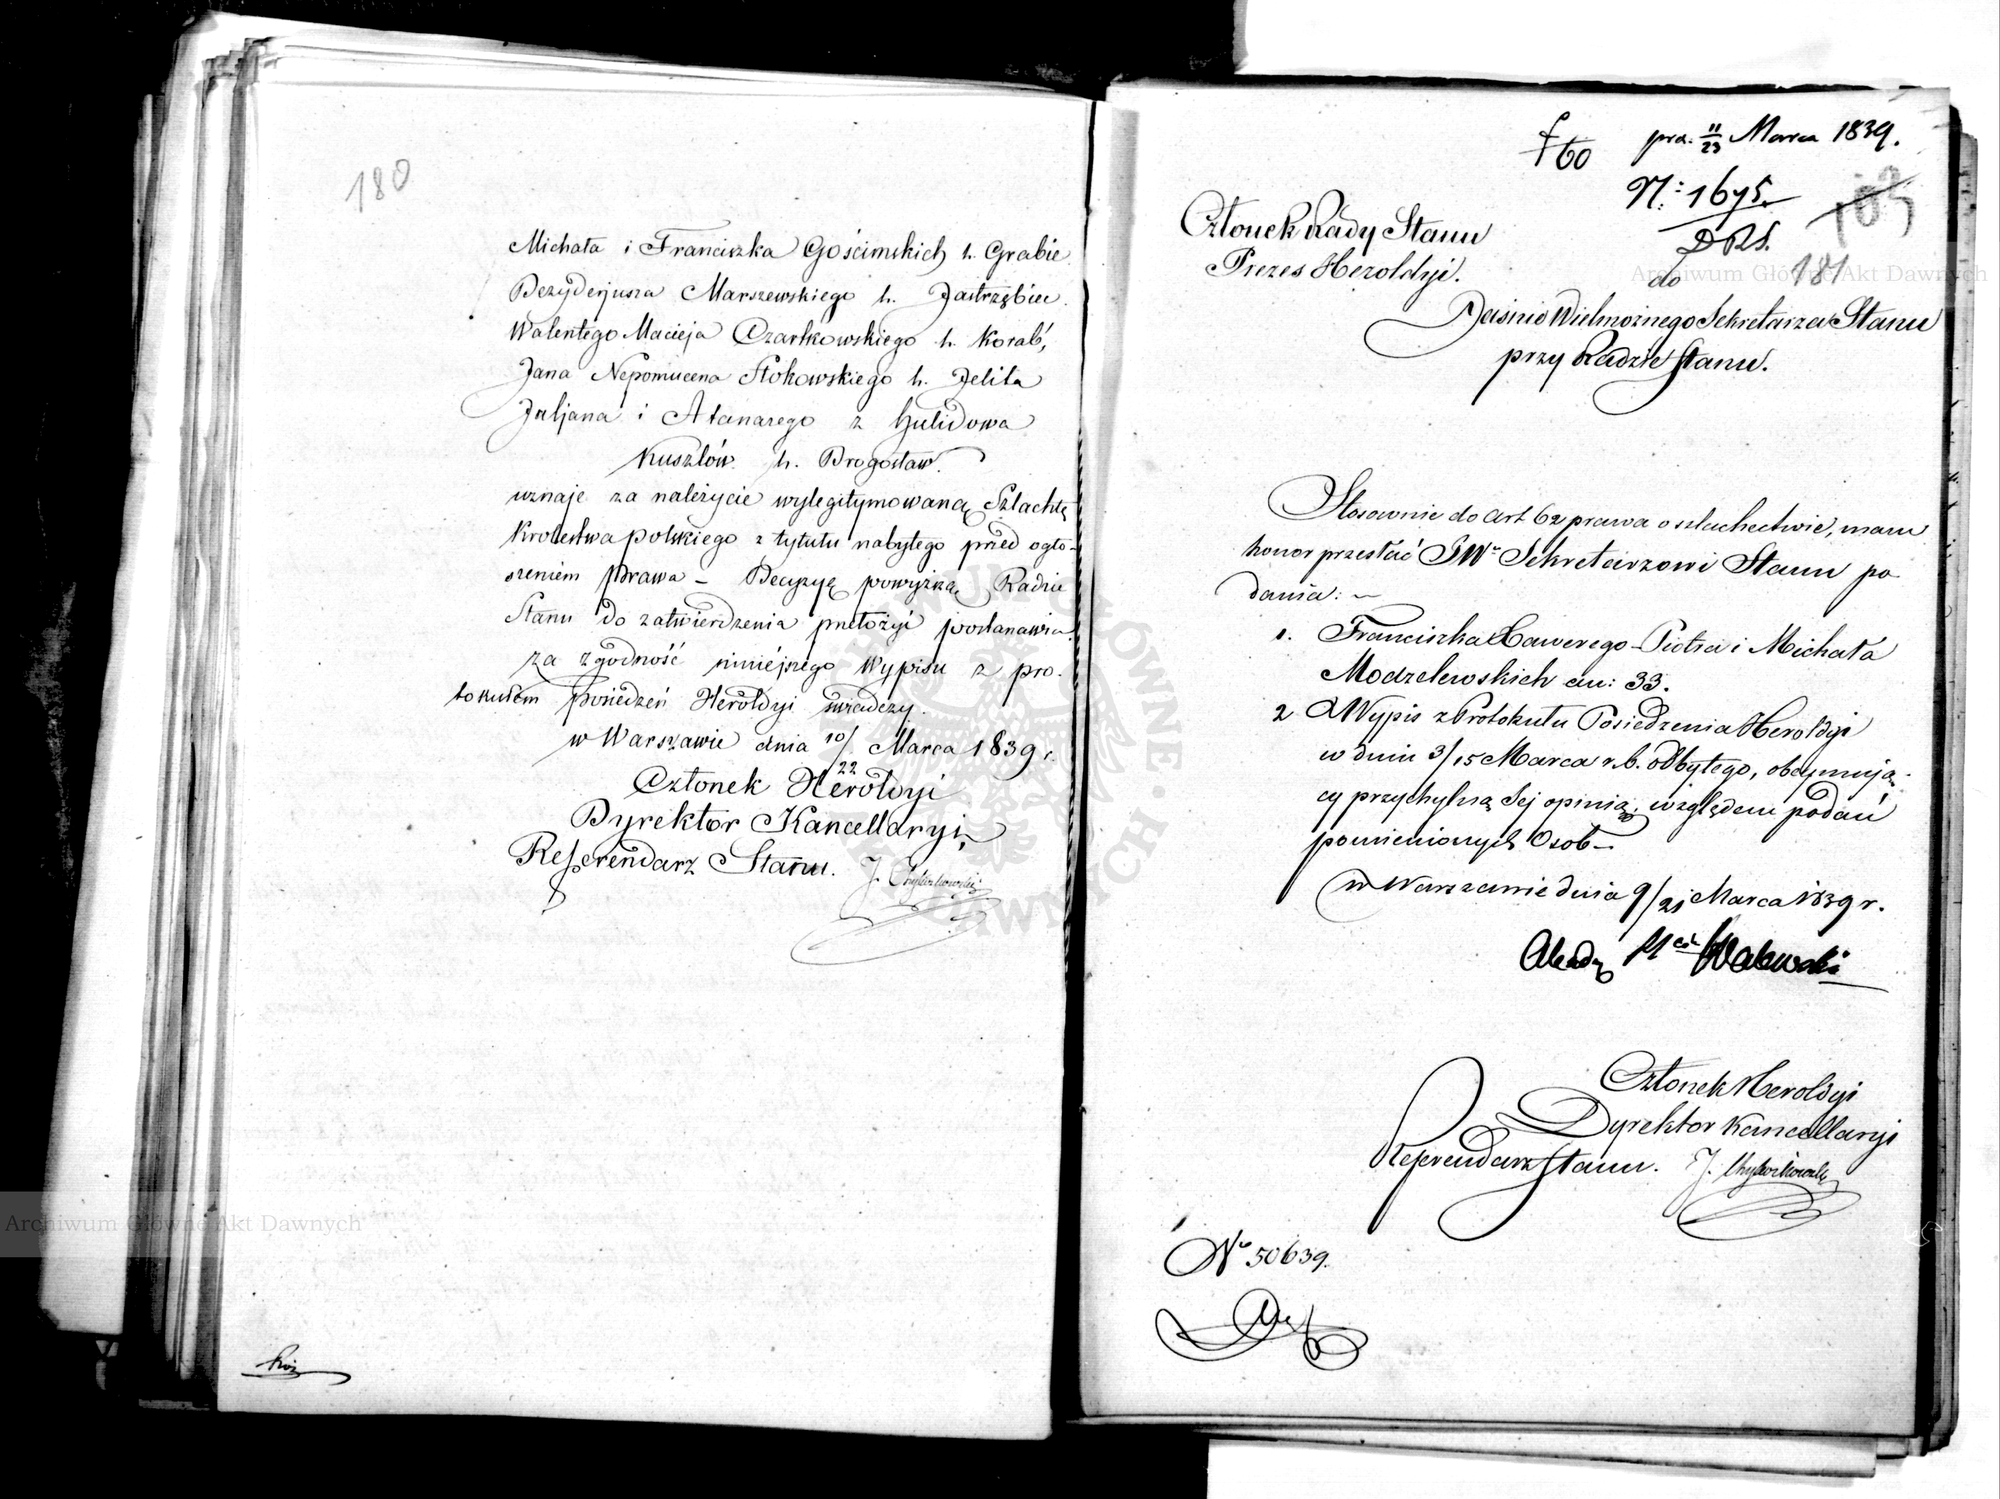 180
Michała i Franciszka Gościmskich h. Grabie
Dezyderjusza Marszewskiego h. Jastrzębiec.
Walentego Macieja Czartkowskiego h. Korab,
Jana Nepomucena Stokowskiego h. Jelita
Juljana i Atanazego z Gulidowa
Kuszlów h. Drogosław.
uznaje za należycie wylegitymowaną Szlachtę
Krolestwa polskiego z tytułu nabytego przed ogło-
szeniem prawa – Decyzyę powyższą Radzie
Stanu do zatwierdzenia przełożyć postanawia.
za zgodność niniejszego Wypisu z pro-
tokułem posiedzeń Heroldyi świadczy.
w Warszawie dnia 10/22 Marca 1839 r.
Członek Heroldyi
Dyrektor Kancellaryi
Referendarz Stanu.
f 60
pra. 11/23 Marca 1839.
N: 1675.
DRS.
103
181
Członek Rady Stanu
Prezes Heroldyi.
do
Jaśnie Wielmożnego Sekretarza Stanu
przy Radzie Stanu.
Stosownie do art 62 prawa o szlachectwie, mam
honor przesłać JWu Sekretarzowi Stanu po
dania: ~
1. Franciszka Xawerego – Piotra i Michała
Modzelewskich au: 33.
2 Wypis z Protokułu Posiedzenia Heroldyi
w dniu 3/15 Marca r.b. odbytego, obejmują-
cy przychylną Jej opinią, względem podań
pomienionych Osob –
w Warszawie dnia 9/21 Marca 1839 r.
Walewski
Członek Heroldyi
Dyrektor Kancellaryi
Referendarz Stanu.
No 50639.
Archiwum Główne Akt Dawnych
Archiwum Główne Akt Dawnych